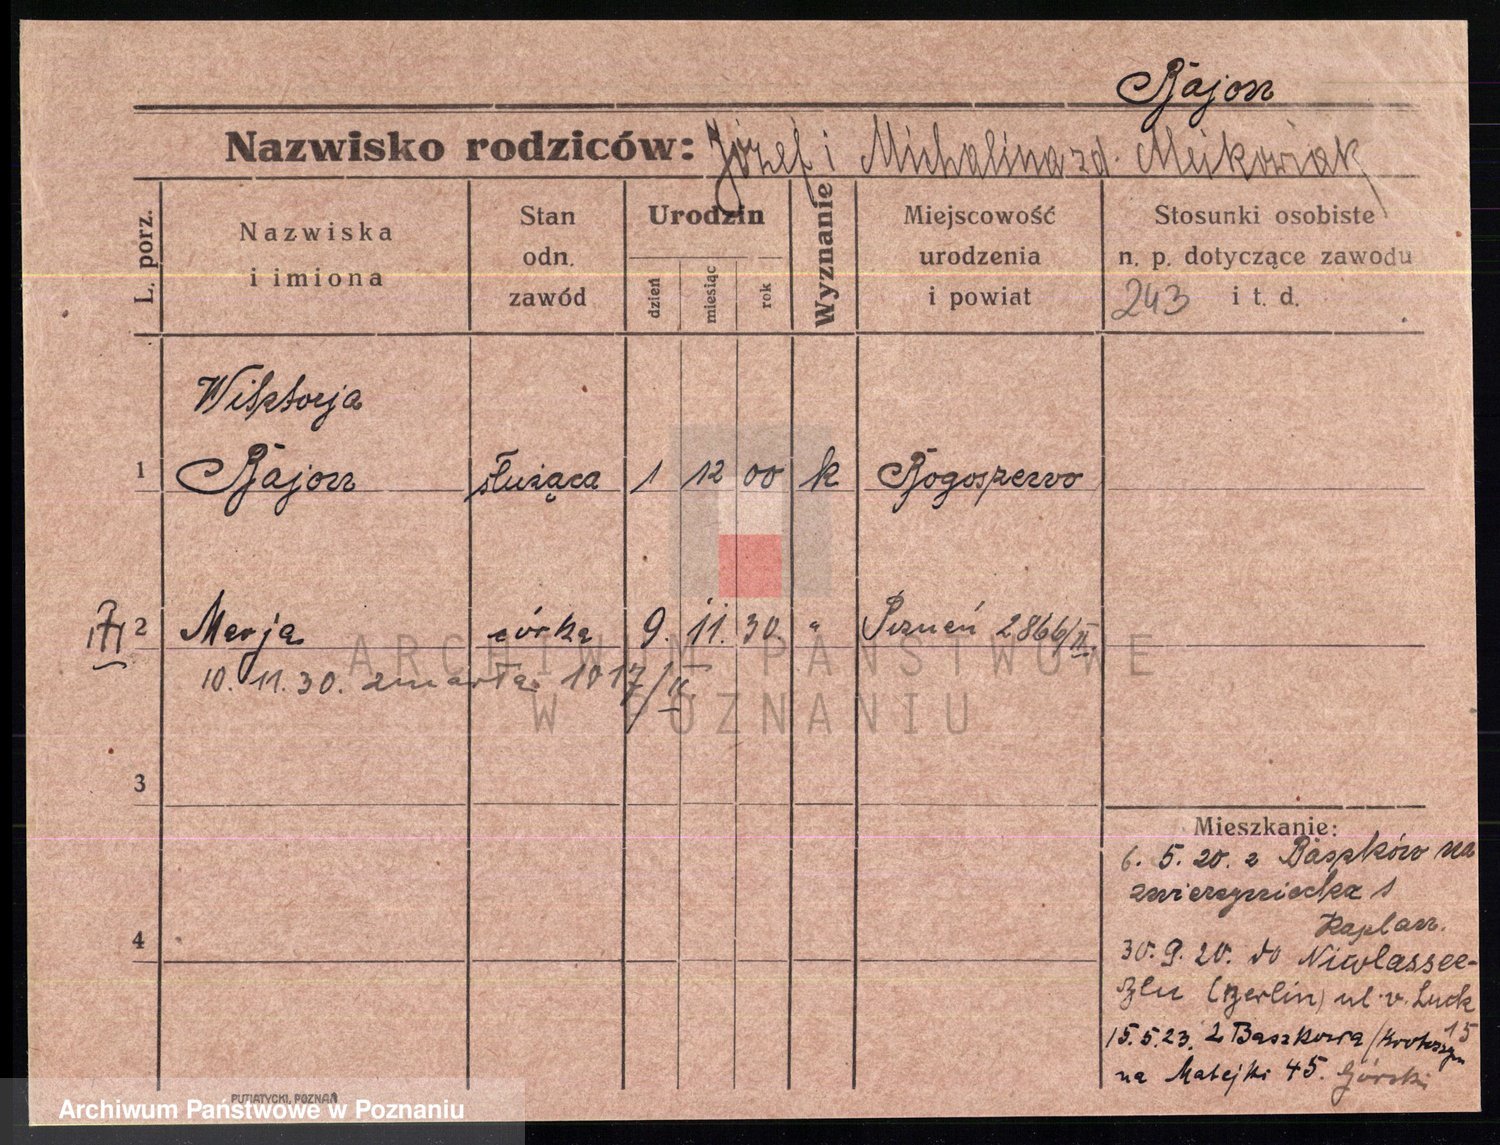 Bajon
Nazwisko rodziców: Józef i Michalina zd. Meikowiak
L. porz.
Nazwiska
i imiona
Stan
odn.
zawód
Urodzin
dzień
miesiąc
rok
Wyznanie
Miejscowość
urodzenia
i powiat
Stosunki osobiste
n. p. dotyczące zawodu
243 i t. d.
Wiktorja
1 Bajon służąca 1 12 00 k Rogoszewo
2 Marja córka 9. 11. 30. " Poznań 2866/II.
10. 11. 30. zmarła 1017/II.
ARCHIWUM PAŃSTWOWE
W POZNANIU
3
Mieszkanie:
6. 5. 20. z Baszków na
zwierzyniecka 1
Kaplan.
4
30. 9. 20. do Nicolassee-
(Berlin) ul. v. Luck
15
15.5.23. z Baszkowa /Krotoszyn
na Matejki 45. Górski
PUTIATYCKI, POZNAŃ
Archiwum Państwowe w Poznaniu